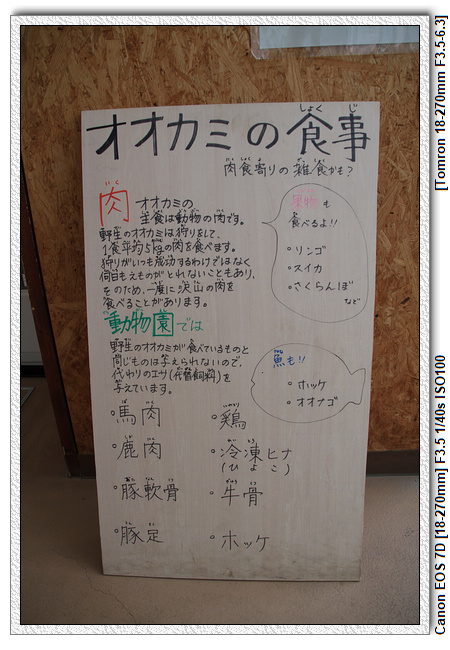 オオカミの食事
しょく じ
肉食寄りの雑食かも?
肉
にく
オオカミの
主食は動物の肉です。
野生のオオカミは狩りをして、
1食平均5kgの肉を食べます。
狩りがいつも成功するわけではなく
何日もえものがとれないこともあり、
そのため、一度に沢山の肉を
食べることがあります。
果物も
食べるよ!!
・リンゴ
・スイカ
・さくらんぼ
など
動物園では
野生のオオカミが食べているものと
同じものは与えられないので、
代わりのエサ(代替飼料)を
与えています。
魚も!!
・ホッケ
・オオナゴ
・馬肉
・鹿肉
・豚軟骨
・豚足
・鶏
・冷凍ヒナ
(ひよこ)
・牛骨
・ホッケ
Canon EOS 7D [18-270mm] F3.5 1/40s ISO100
[Tomron 18-270mm F3.5-6.3]